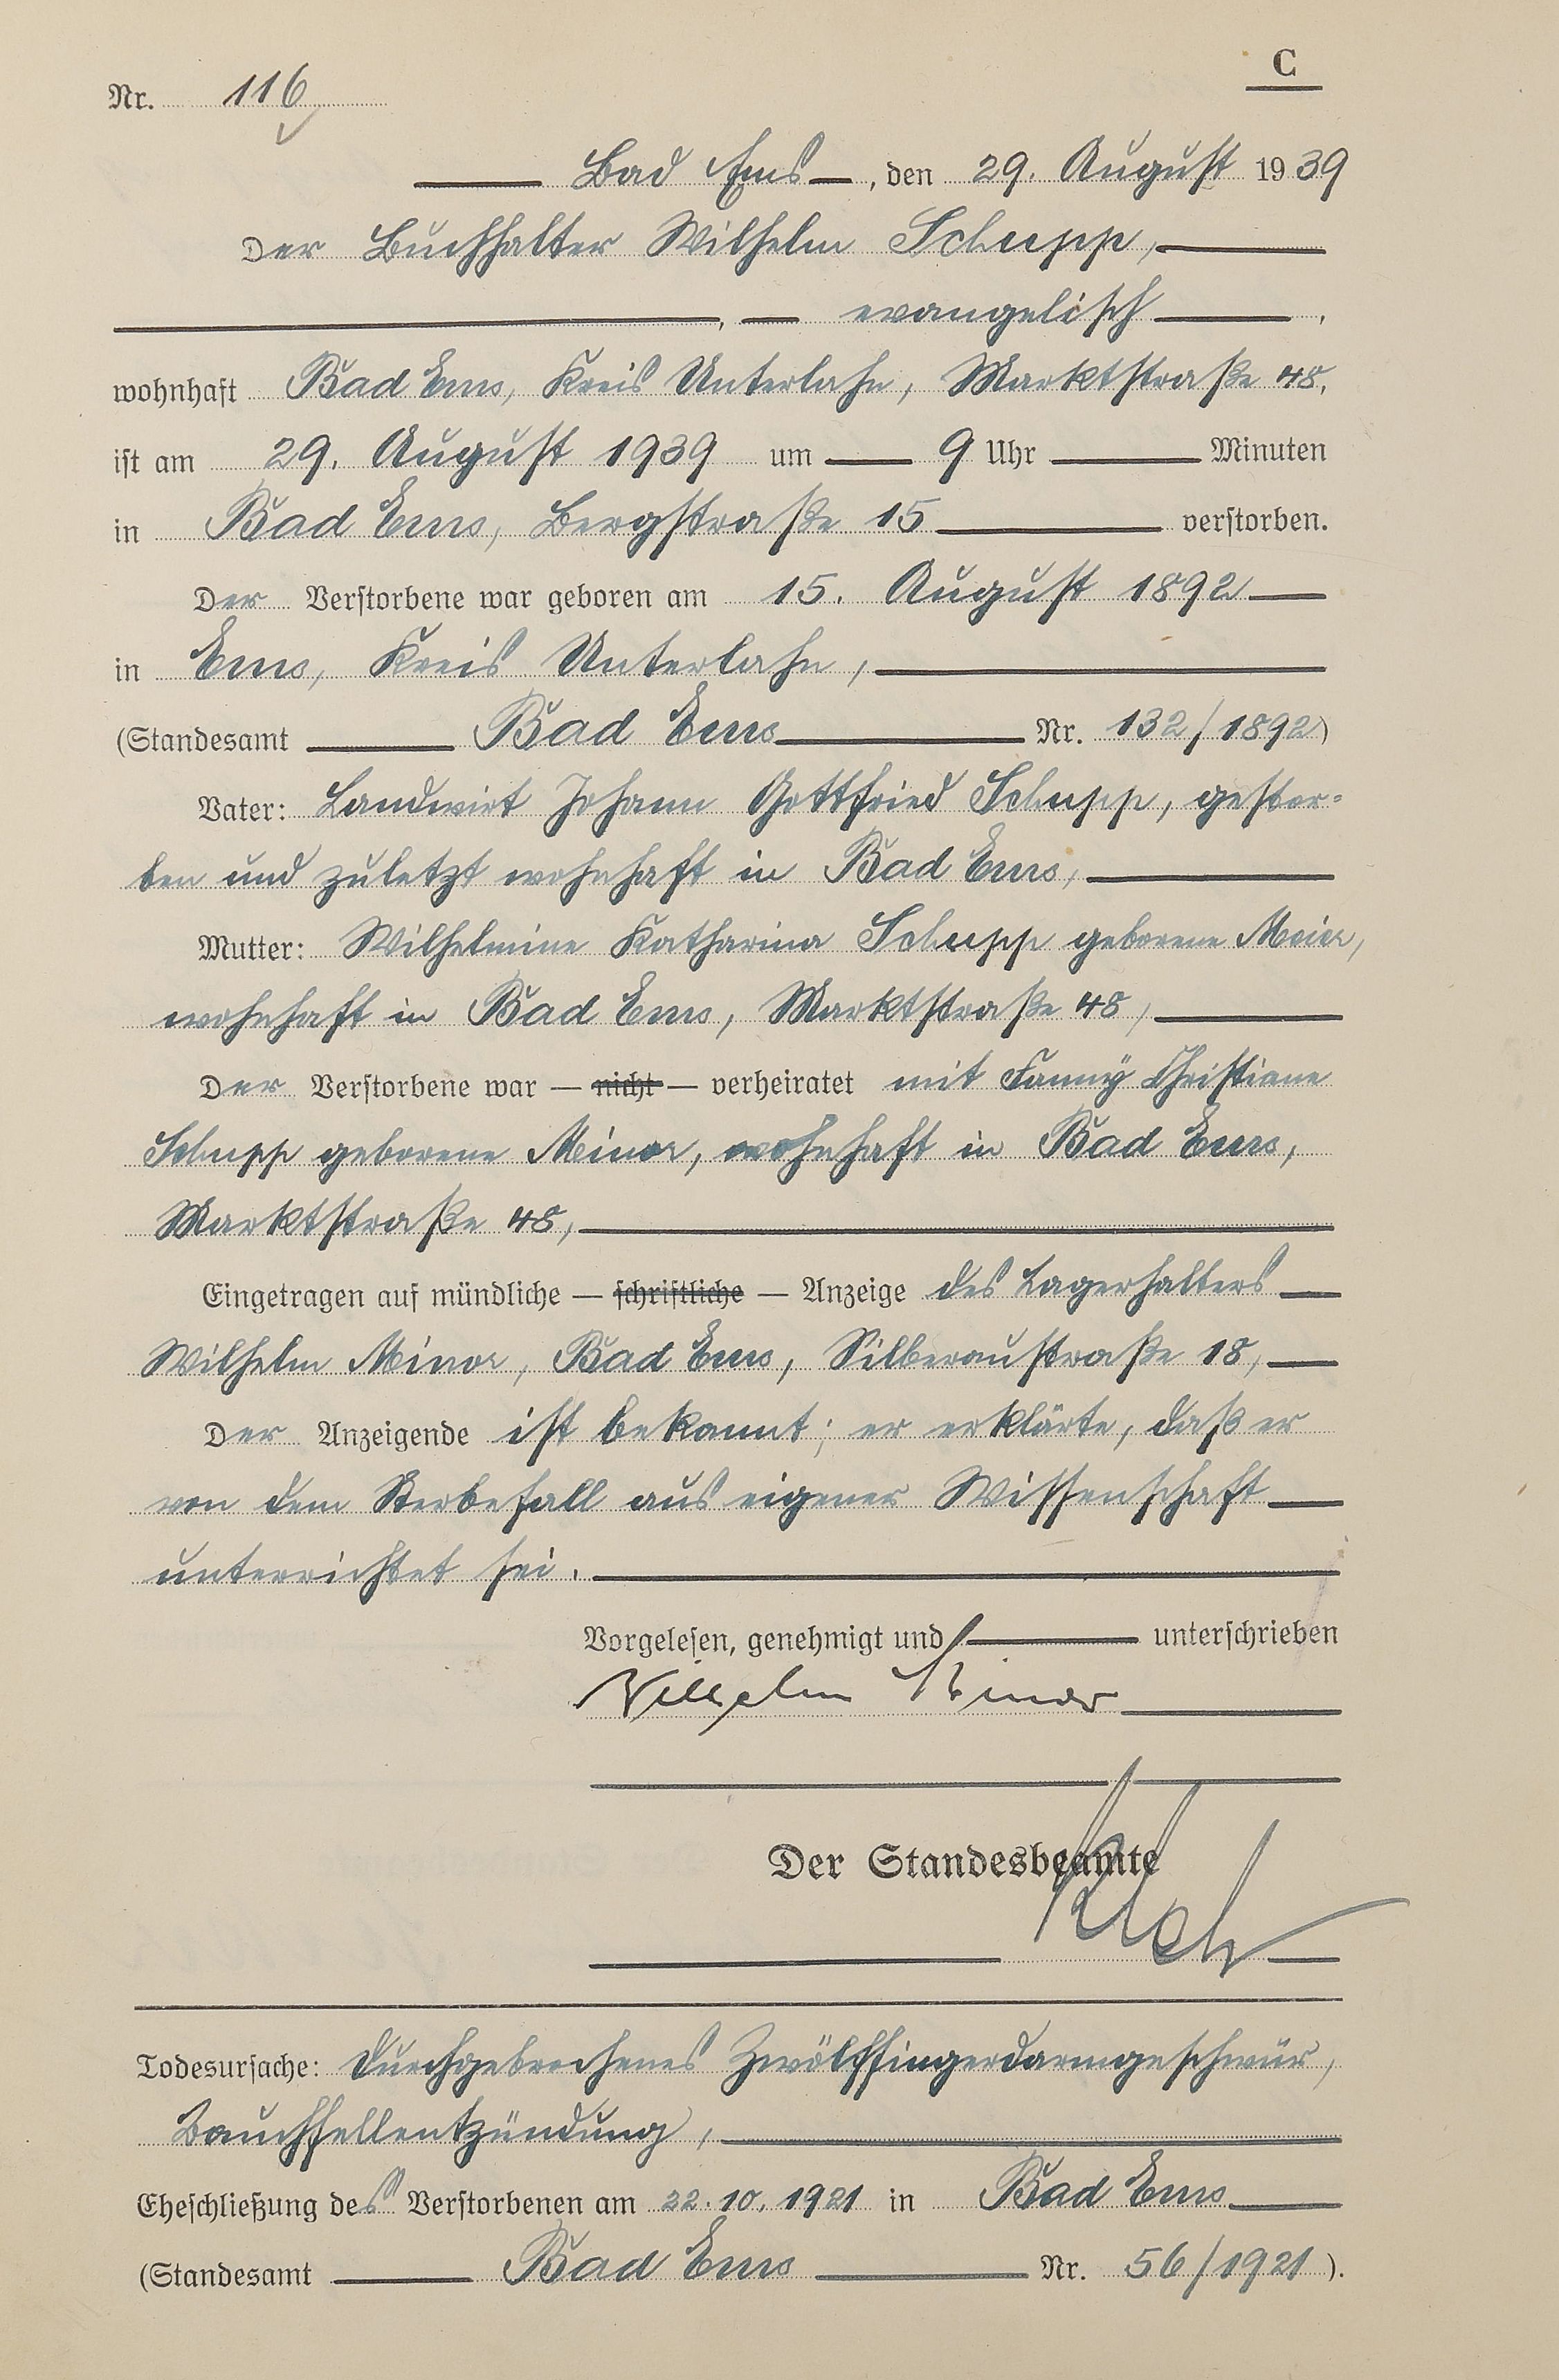 C
Nr. 116
Bad Ems, den 29. August 1939
Der Buchhalter Wilhelm Schupp,
, evangelisch,
wohnhaft Bad Ems, Kreis Unterlahn, Marktstraße 48,
ist am 29. August 1939 um 9 Uhr Minuten
in Bad Ems, Bergstraße 15 verstorben.
Der Verstorbene war geboren am 15. August 1892
in Ems, Kreis Unterlahn,
(Standesamt Bad Ems Nr. 132/1892)
Vater: Landwirt Johann Gottfried Schupp, gestor-
ben und zuletzt wohnhaft in Bad Ems,
Mutter: Wilhelmine Katharina Schupp geborene Meier,
wohnhaft in Bad Ems, Marktstraße 48,
Der Verstorbene war — nicht — verheiratet mit Fanny Christiane
Schupp geborene Minor, wohnhaft in Bad Ems,
Marktstraße 48,
Eingetragen auf mündliche — schriftliche — Anzeige des Lagerhalters
Wilhelm Minor, Bad Ems, Silberaustraße 18,
Der Anzeigende ist bekannt; er erklärte, daß er
von dem Sterbefall aus eigener Wissenschaft
unterrichtet sei.
Vorgelesen, genehmigt und unterschrieben
Wilhelm Minor
Der Standesbeamte
Todesursache: Durchgebrochenes Zwölffingerdarmgeschwür,
Bauchfellentzündung,
Eheschließung des Verstorbenen am 22.10.1921 in Bad Ems
(Standesamt Bad Ems Nr. 56/1921).